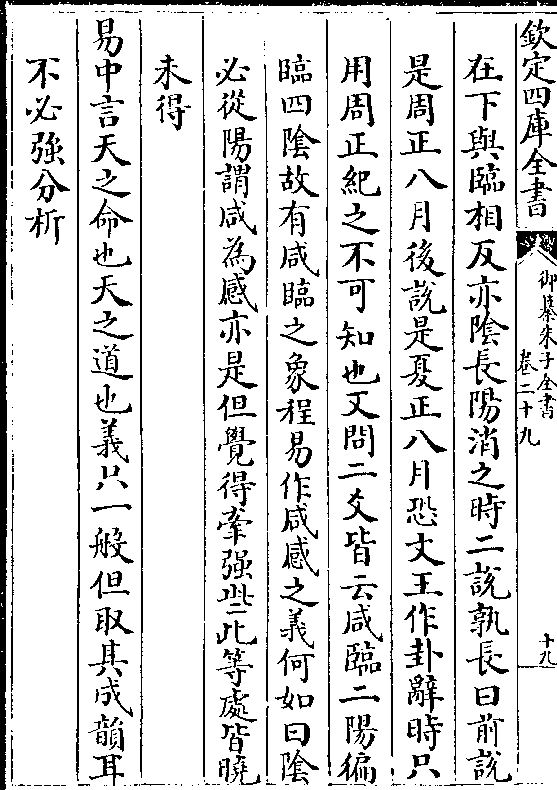 欽定四庫全書
御纂朱子全書
卷二十九
十九
在下與臨相反亦陰長陽消之時二說孰長曰前說
是周正八月後說是夏正八月恐文王作卦辭時只
用周正紀之不可知也又問二爻皆云咸臨二陽徧
臨四陰故有咸臨之象程易作咸感之義何如曰陰
必從陽謂咸為感亦是但覺得牽强些此等處皆曉
未得
易中言天之命也天之道也義只一般但取其成韻耳
不必強分析